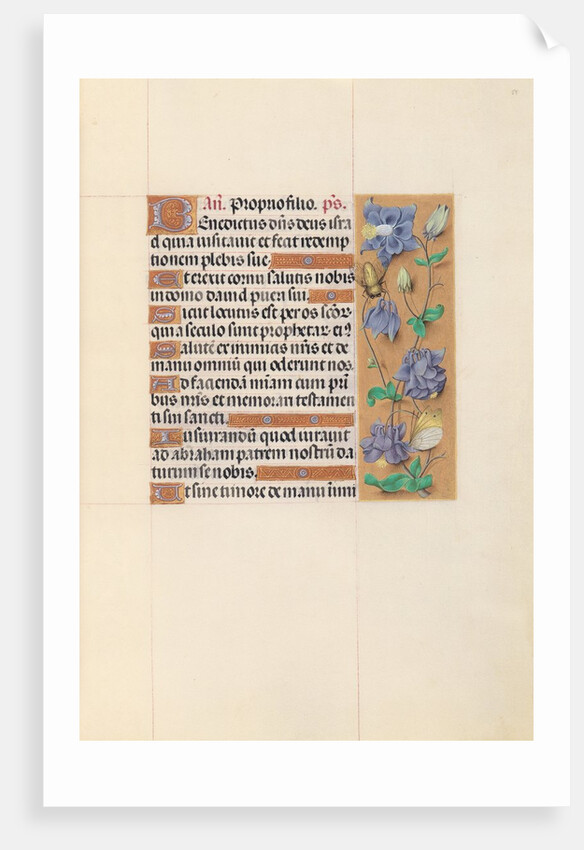 An̄. Proprio filio. ps̄.
Benedictus dn̄s deus isra
el quia uisitauit et fecit redemp
tionem plebis sue.
Et erexit cornu salutis nobis
in domo dauid pueri sui.
Sicut locutus est per os sc̄oꝝ
qui a seculo sunt prophetaꝝ eiꝰ
Salutē ex inimicis nr̄is et de
manu omniū qui oderunt nos.
Ad faciendā mīam cum pr̄i
bus nr̄is et memorari testamen
ti sui sancti.
Iusiurandū quod iurauit
ad abraham patrem nostrū da
turum se nobis.
Ut sine timore de manu inimi